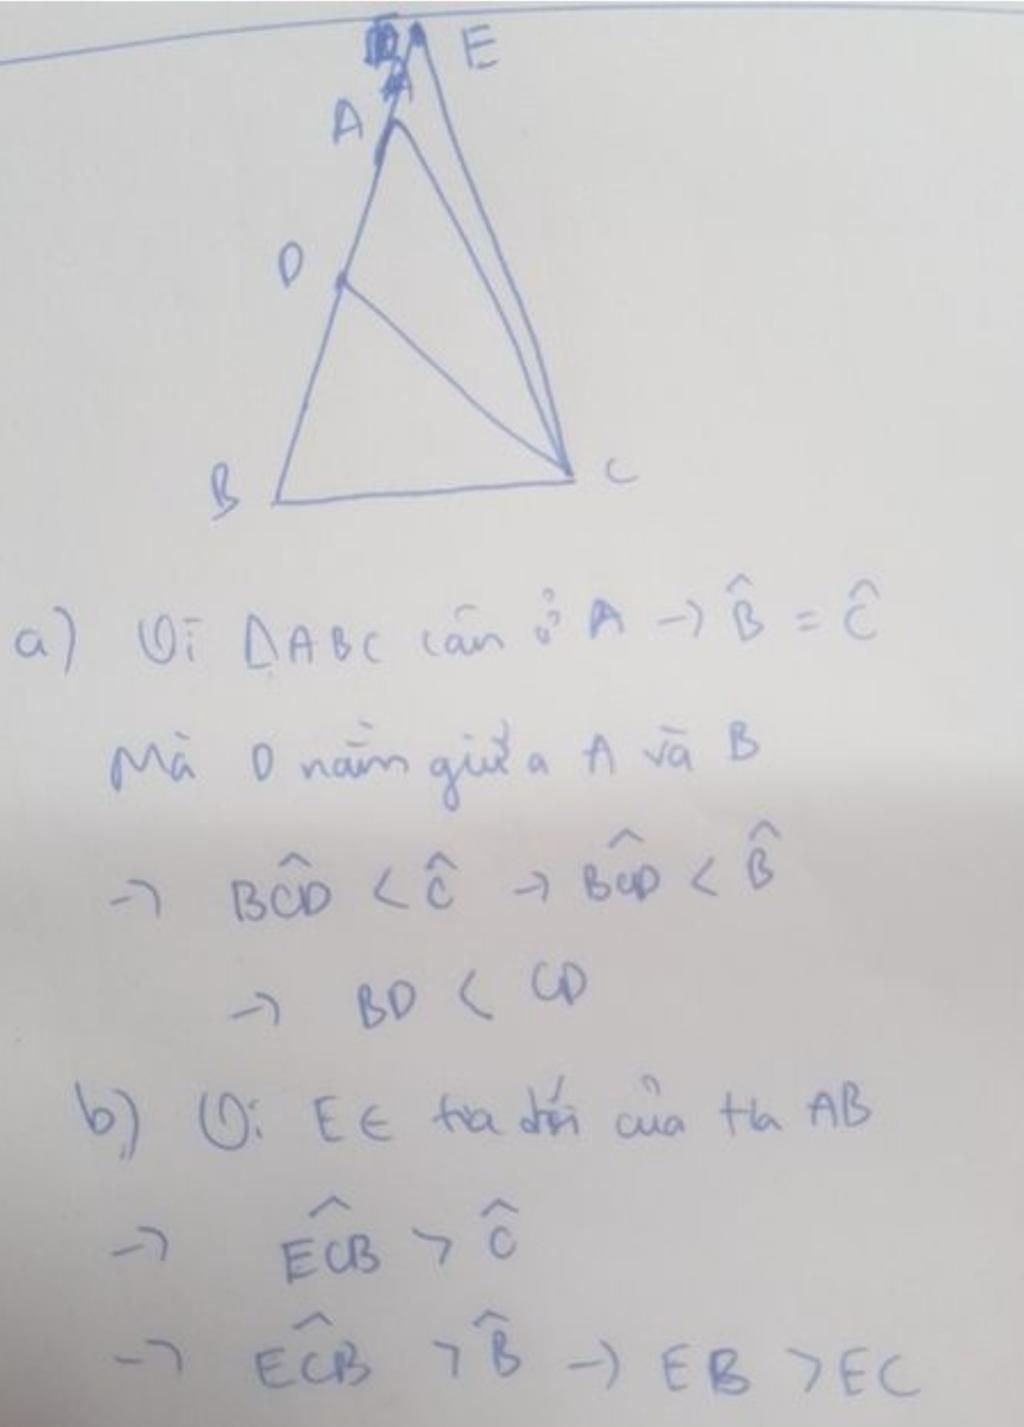 E
A
D
B
C
a) Vì ΔABC cân ở A → B̂ = Ĉ
Mà D nằm giữa A và B
→ BĈD < Ĉ → BĈD < B̂
→ BD < CD
b) Vì E ∈ tia đối của tia AB
→ EĈB > Ĉ
→ EĈB > B̂ → EB > EC